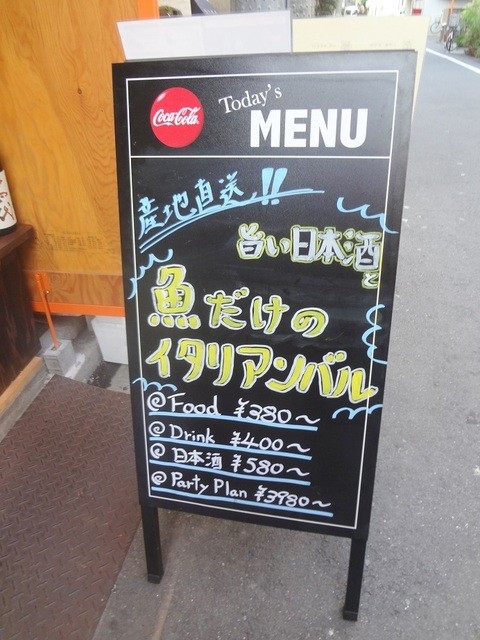 Coca-Cola
Today's
MENU
産地直送!!
旨い日本酒
と
魚だけの
イタリアンバル
@Food ¥380〜
@Drink ¥400〜
@日本酒 ¥580〜
@Party Plan ¥3980〜